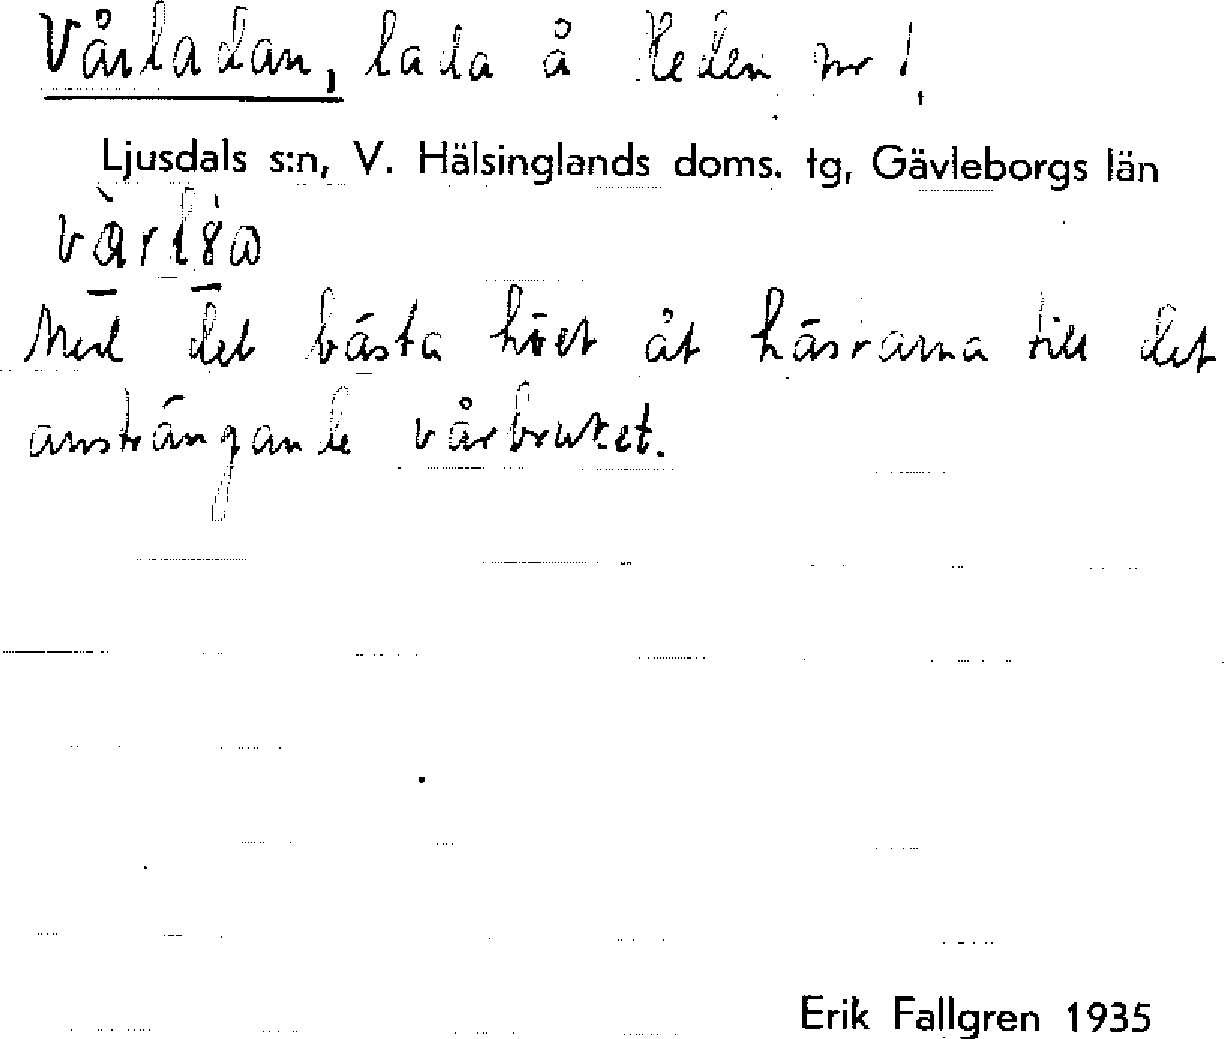 Vårladan, lada å Heden nr 1
Ljusdals s:n, V. Hälsinglands doms. tg, Gävleborgs län
Med det bästa höet åt hästarna till det
ansträngande vårbruket.
Erik Fallgren 1935